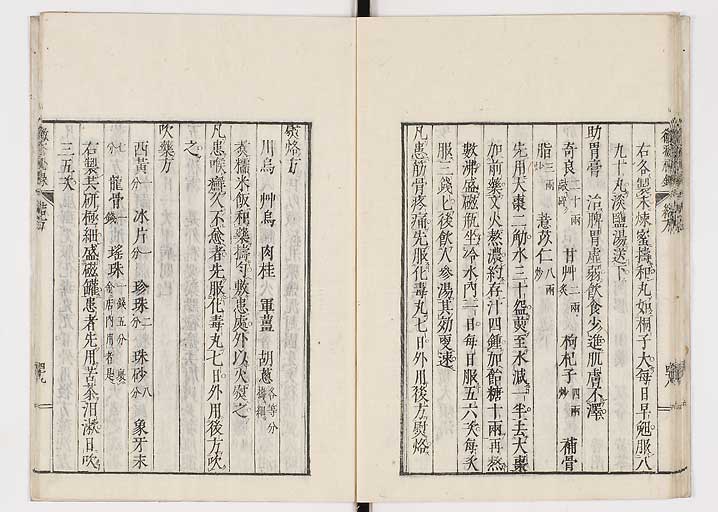 右各製末煉蜜擣和丸如桐子大每日早麵服八
九十丸淡鹽湯送下
助胃膏 治脾胃虛弱飲食少進肌膚不澤
奇良 二十兩 甘艸 二兩 炙 枸杞子 四兩 炒 補骨
脂 三兩 炒 薏苡仁 八兩 炒
先用大棗二觔水三十盌煎至水減一半去大棗
加前藥文火熬濃約存汁四鍾加飴糖十兩再熬
數沸盛磁瓶坐冷水內三日每日服五六次每次
服三錢七後飲人參湯其効更速
凡患筋骨疼痛先服化毒丸七日外用後方熨烙
熨烙方
川烏 艸烏 肉桂 軍薑 胡蔥 各等分
煑糯米飯和藥擣勻敷患處外以火熨之
凡患喉癬久不愈者先服化毒丸七日外用後方吹
之
吹藥方
西黃 一分 冰片 一分 珍珠 二分 珠砂 八分 象牙末
七分 龍骨 一錢 瑤珠 一錢五分
右製共研極細盛磁罐患者先用苦茶泔漱日吹
三五次